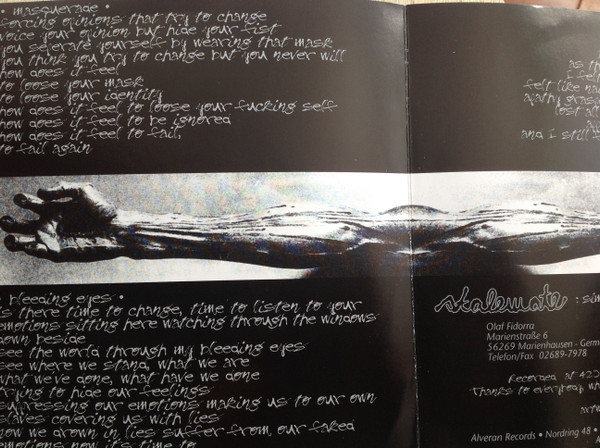 masquerade •
forcing opinions that try to change
voice your opinion but hide your fist
you seperate yourself by wearing that mask
you think you try to change but you never will
how does it feel
to loose your mask
to loose your identity
how does it feel to loose your fucking self
how does it feel to be ignored
how does it feel to fail,
to fail again
as th
i fel
felt like na
apathy gras
lost all
and i still
bleeding eyes •
is there time to change, time to listen to your
emotions sitting here watching through the windows
down beside
see the world through my bleeding eyes
see where we stand, what we are
what we've done, what have we done
trying to hide our feelings
supressing our emotions making us to our own
slaves covering us with lies
how we drown in lies suffer from our faked
emotions now it's time to
stalemate : sim
Olaf Fidorra
Marienstraße 6
56269 Marienhausen - Germ
Telefon/Fax 02689-7978
Recorded at 420
Thanks to everybody wh
artw
Alveran Records • Nordring 48 •